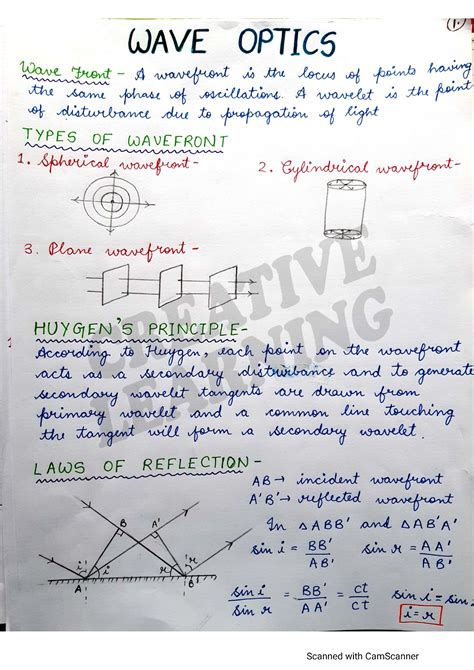 (1.)
WAVE OPTICS
Wave Front - A wavefront is the locus of points having
the same phase of oscillations. A wavelet is the point
of disturbance due to propagation of light
TYPES OF WAVEFRONT
1. Spherical wavefront -
2. Cylindrical wavefront -
3. Plane wavefront -
CREATIVE
LEARNING
HUYGEN'S PRINCIPLE -
According to Huygen, each point on the wavefront
acts as a secondary disturbance and to generate
secondary wavelet tangents are drawn from
primary wavelet and a common line touching
the tangent will form a secondary wavelet.
LAWS OF REFLECTION -
AB → incident wavefront
A'B' → reflected wavefront
In △ABB' and △AB'A'
sin i = BB' / AB'
sin r = AA' / AB'
sin i / sin r = BB' / AA' = ct / ct
sin i = sin
i = r
B A'
i r
A B'
Scanned with CamScanner